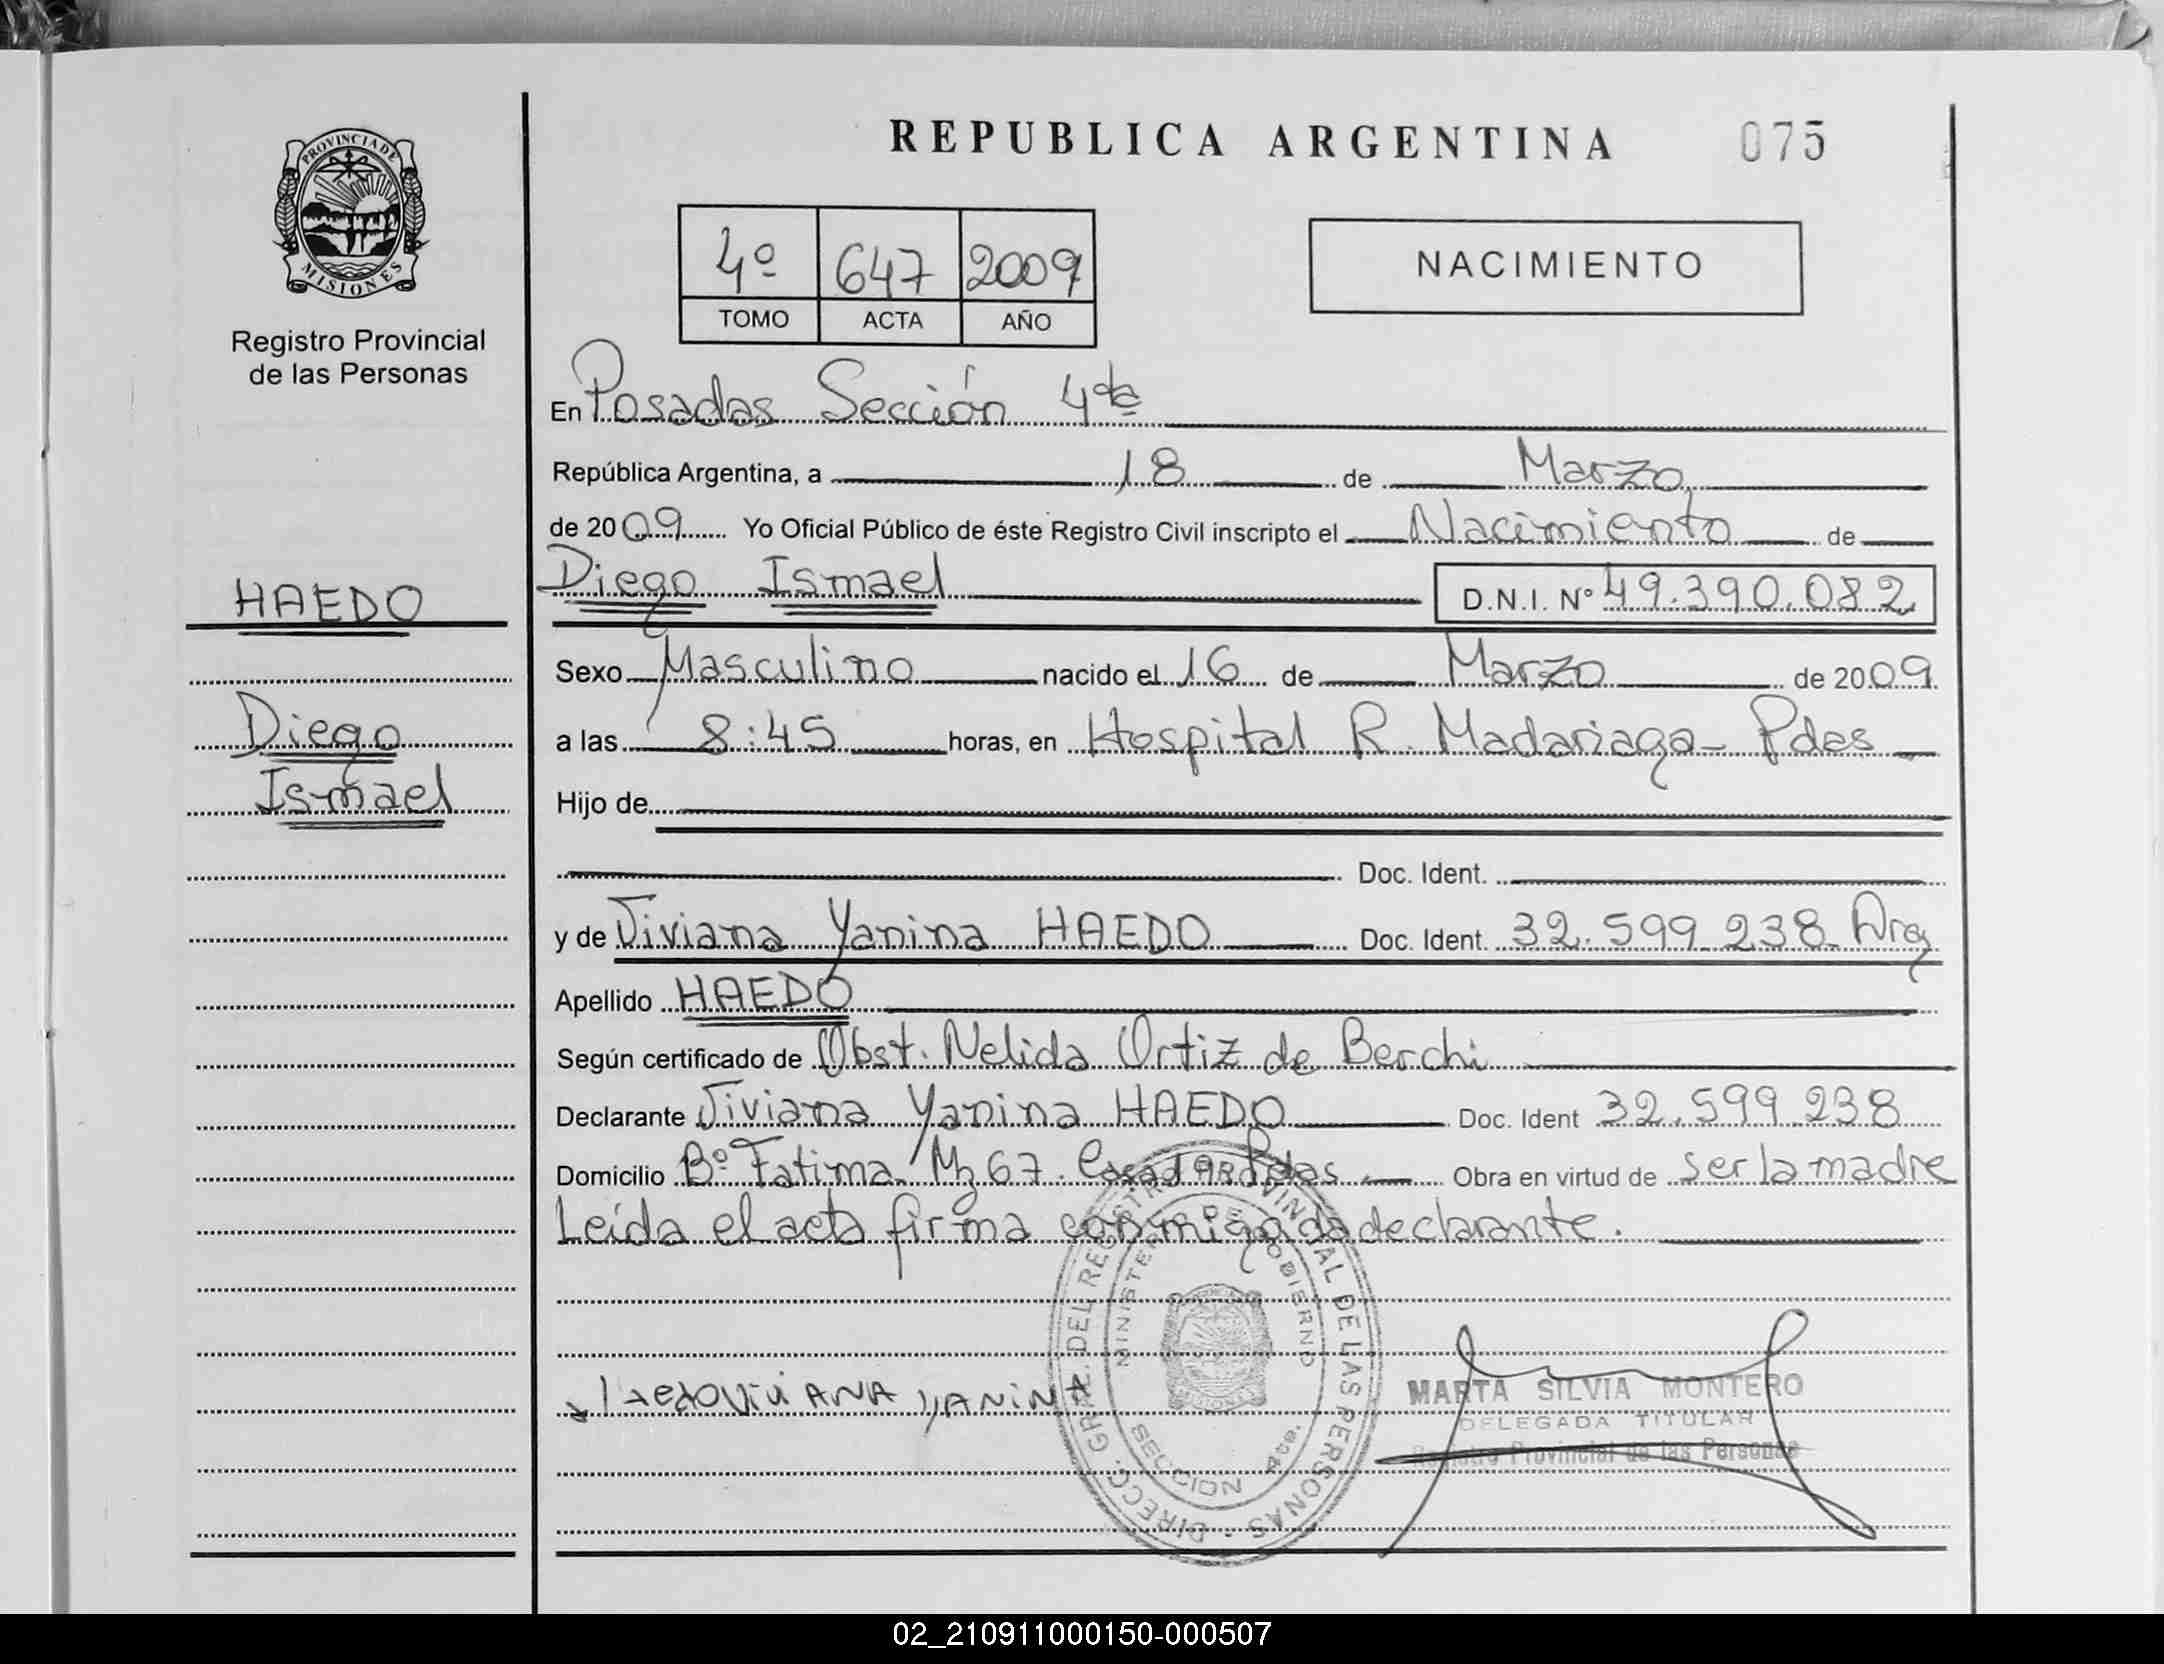 REPUBLICA ARGENTINA 075
PROVINCIA DE MISIONES
Registro Provincial
de las Personas
4º 647 2009
TOMO ACTA AÑO
NACIMIENTO
En Posadas Sección 4ta
República Argentina, a 18 de Marzo
de 2009 Yo Oficial Público de éste Registro Civil inscripto el Nacimiento de
Diego Ismael D.N.I. Nº 49.390.082
HAEDO
Diego
Ismael
Sexo Masculino nacido el 16 de Marzo de 2009
a las 8:45 horas, en Hospital R. Madariaga - Pdas
Hijo de
Doc. Ident.
y de Viviana Yanina HAEDO Doc. Ident. 32.599.238 Arg
Apellido HAEDO
Según certificado de Obst. Nelida Ortiz de Berchi
Declarante Viviana Yanina HAEDO Doc. Ident 32.599.238
Domicilio Bº Fatima Mz 67. Casa Pdas Obra en virtud de ser la madre
Leída el acta firma conmigo la declarante.
HaedoViviANA YANiNA
DIRECC. GRAL. DEL REGISTRO PROVINCIAL DE LAS PERSONAS
MINISTERIO DE GOBIERNO
SECCION 4ta.
MARTA SILVIA MONTERO
DELEGADA TITULAR
Registro Provincial de las Personas
02_210911000150-000507